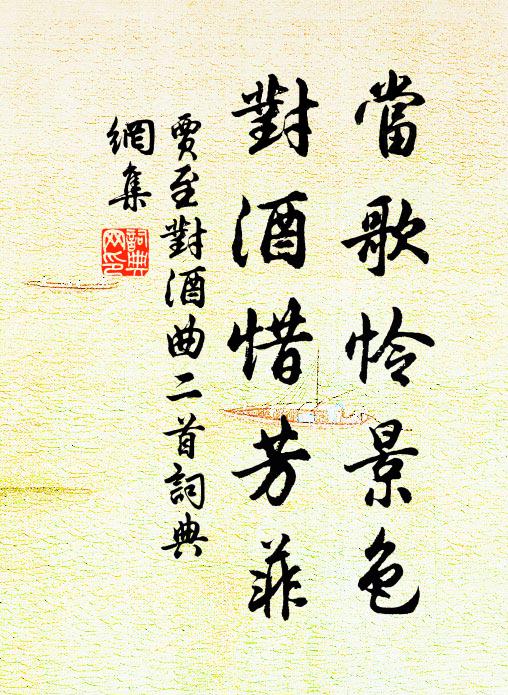 當歌怜景色
對酒惜芳菲
賈至對酒曲二首詞典
網集
詞典
网印